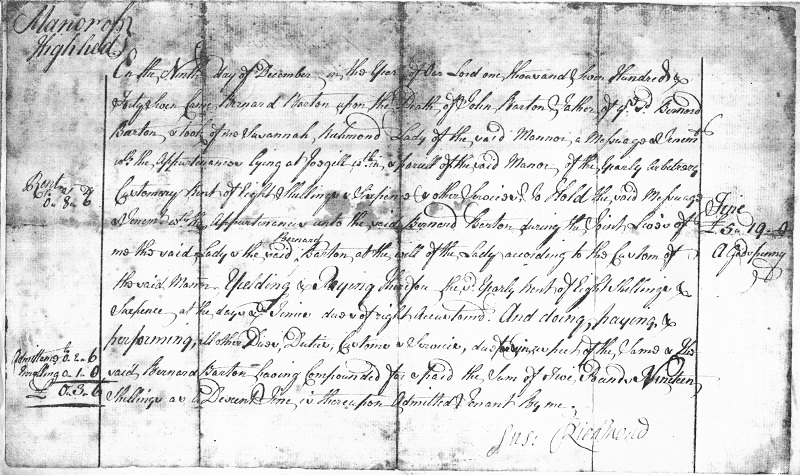 Manor of
Highhead
On the Ninth day of December in the Year of Our Lord one thousand Seven Hundred &
Forty Seven Came Bernard Barton upon the Death of John Barton Father of ye sd. Bernard
Barton & took of me Susannah Richmond Lady of the said Mannor, a Messuage & Tenemt
wth the Appurtenances lying at Foxgill wthin & parcell of the said Manor of the Yearly
Customry Rent of Eight Shillings & Sixpence & other Services To Hold the said Messuage
& Tenemt wth the Appurtenances unto the said Bernard Barton during the Joint Lives of
me the said Lady & the said Bernard Barton, at the will of the Lady according to the Custom of
the said Manor Yielding & Paying therefore the sd. Yearly Rent of Eight Shillings &
Sixpence at the days & Times due & of right Accustomed. And doing, paying, &
performing, all other Dues, Duties, Customs & Services, due for & in respect of the Same & the
said Bernard Barton having Compounded for & paid the Sum of Five Pounds Nineteen
Shillings as a Descent Fine is thereupon Admitted Tenant by me.
Sus: Richmond
Rent
0. 8. 6
Admittance 0. 2. 6
Enrolling 0. 1. 0
£ 0. 3. 6
Fine
£ 5. 19. 0
A Gods penny